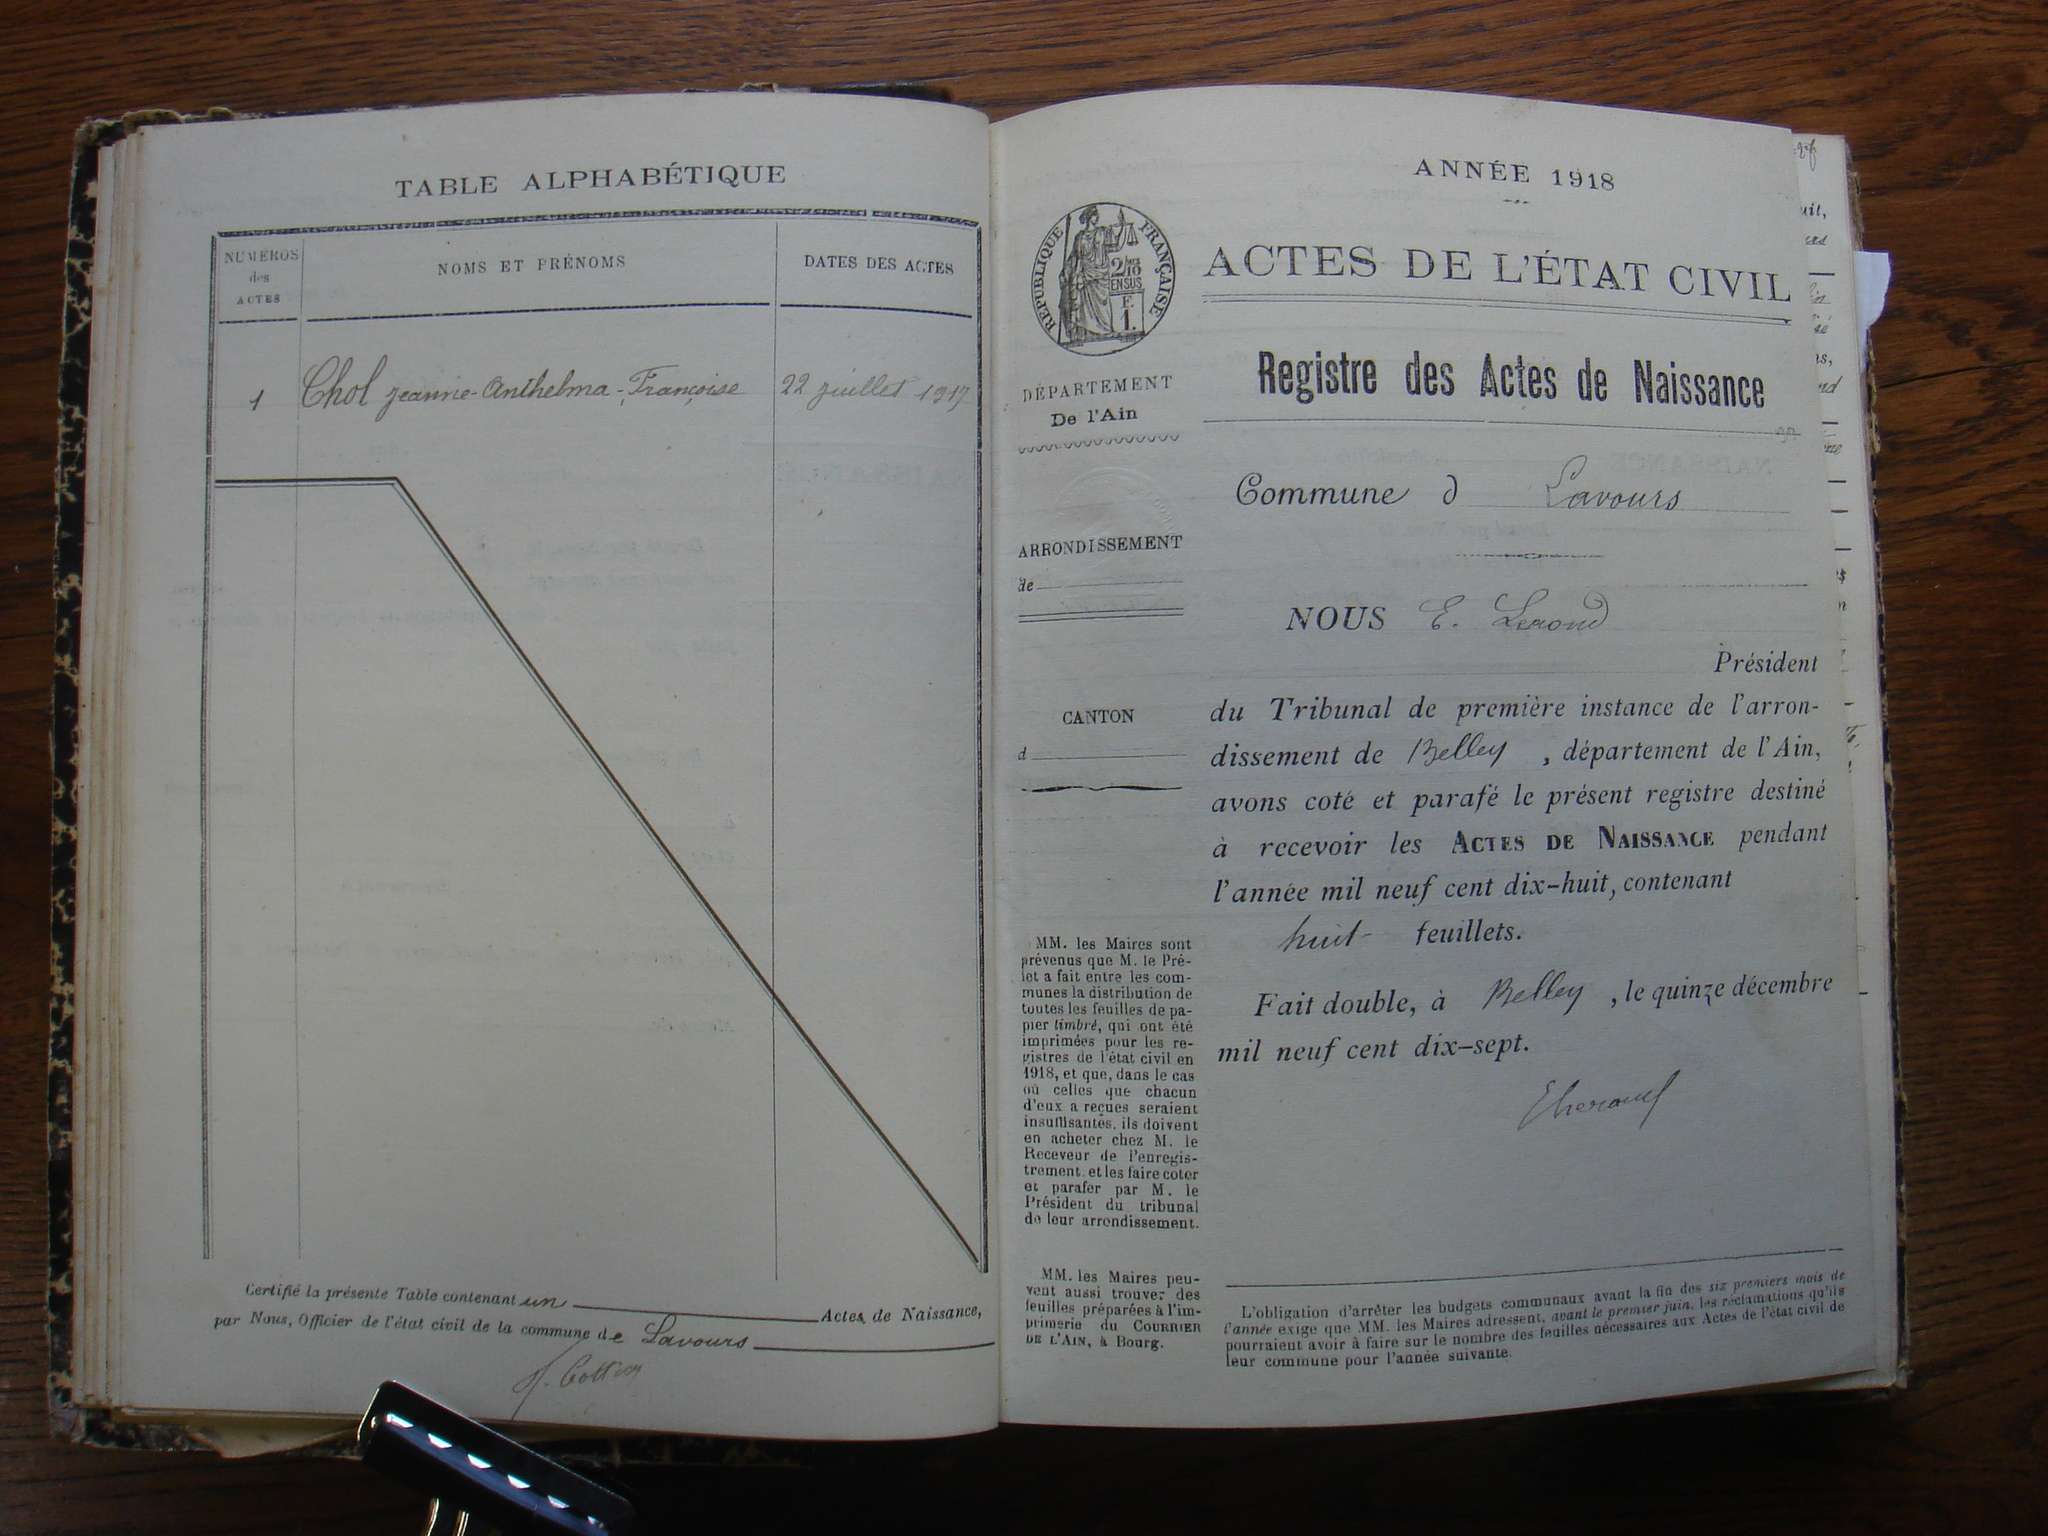 TABLE ALPHABÉTIQUE
NUMÉROS
des
ACTES
NOMS ET PRÉNOMS
DATES DES ACTES
1 Chol Jeanne-Anthelma-Françoise 22 juillet 1917
Certifié la présente Table contenant un Actes de Naissance,
par Nous, Officier de l'état civil de la commune de Lavours
ANNÉE 1918
RÉPUBLIQUE FRANÇAISE
2/10
EN SUS
F.
1.
ACTES DE L'ÉTAT CIVIL
Registre des Actes de Naissance
DÉPARTEMENT
De l'Ain
Commune d Lavours
ARRONDISSEMENT
de
NOUS E. Lerond
Président
CANTON
d
du Tribunal de première instance de l'arron-
dissement de Belley, département de l'Ain,
avons coté et parafé le présent registre destiné
à recevoir les ACTES DE NAISSANCE pendant
l'année mil neuf cent dix-huit, contenant
huit feuillets.
Fait double, à Belley, le quinze décembre
mil neuf cent dix-sept.
MM. les Maires sont
prévenus que M. le Pré-
fet a fait entre les com-
munes la distribution de
toutes les feuilles de pa-
pier timbré, qui ont été
imprimées pour les re-
gistres de l'état civil en
1918, et que, dans le cas
où celles que chacun
d'eux a reçues seraient
insuffisantes, ils doivent
en acheter chez M. le
Receveur de l'enregis-
trement, et les faire coter
et parafer par M. le
Président du tribunal
de leur arrondissement.
MM. les Maires peu-
vent aussi trouver des
feuilles préparées à l'im-
primerie du COURRIER
DE L'AIN, à Bourg.
L'obligation d'arrêter les budgets communaux avant la fin des six premiers mois de
l'année exige que MM. les Maires adressent, avant le premier juin, les réclamations qu'ils
pourraient avoir à faire sur le nombre des feuilles nécessaires aux Actes de l'état civil de
leur commune pour l'année suivante.